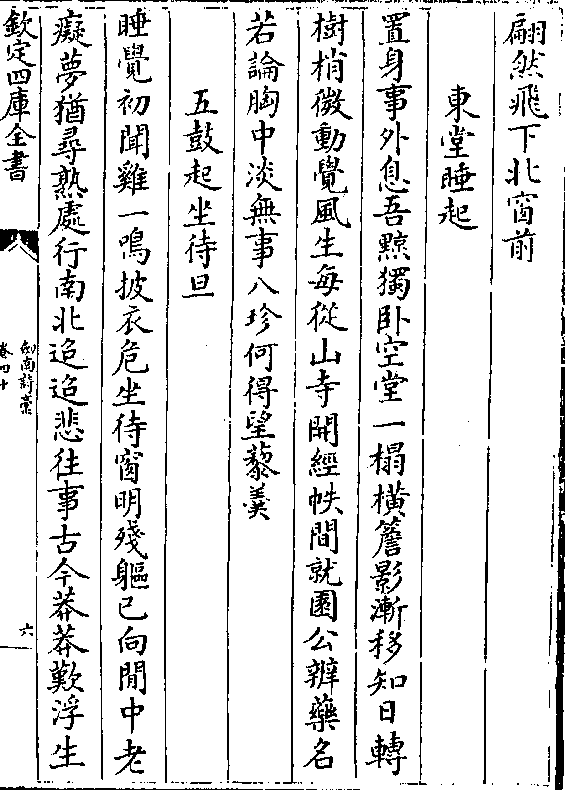 翩然飛下北窗前
東堂睡起
置身事外息吾黥獨卧空堂一榻橫簷影漸移知日轉
樹梢微動覺風生每從山寺開經帙間就園公辨藥名
若論胸中淡無事八珍何得望藜羮
五鼓起坐待旦
睡覺初聞雞一鳴披衣危坐待窗明殘軀已向閒中老
癡夢猶尋熟處行南北迢迢悲往事古今莽莽歎浮生
欽定四庫全書
劍南詩藁
卷四十
六